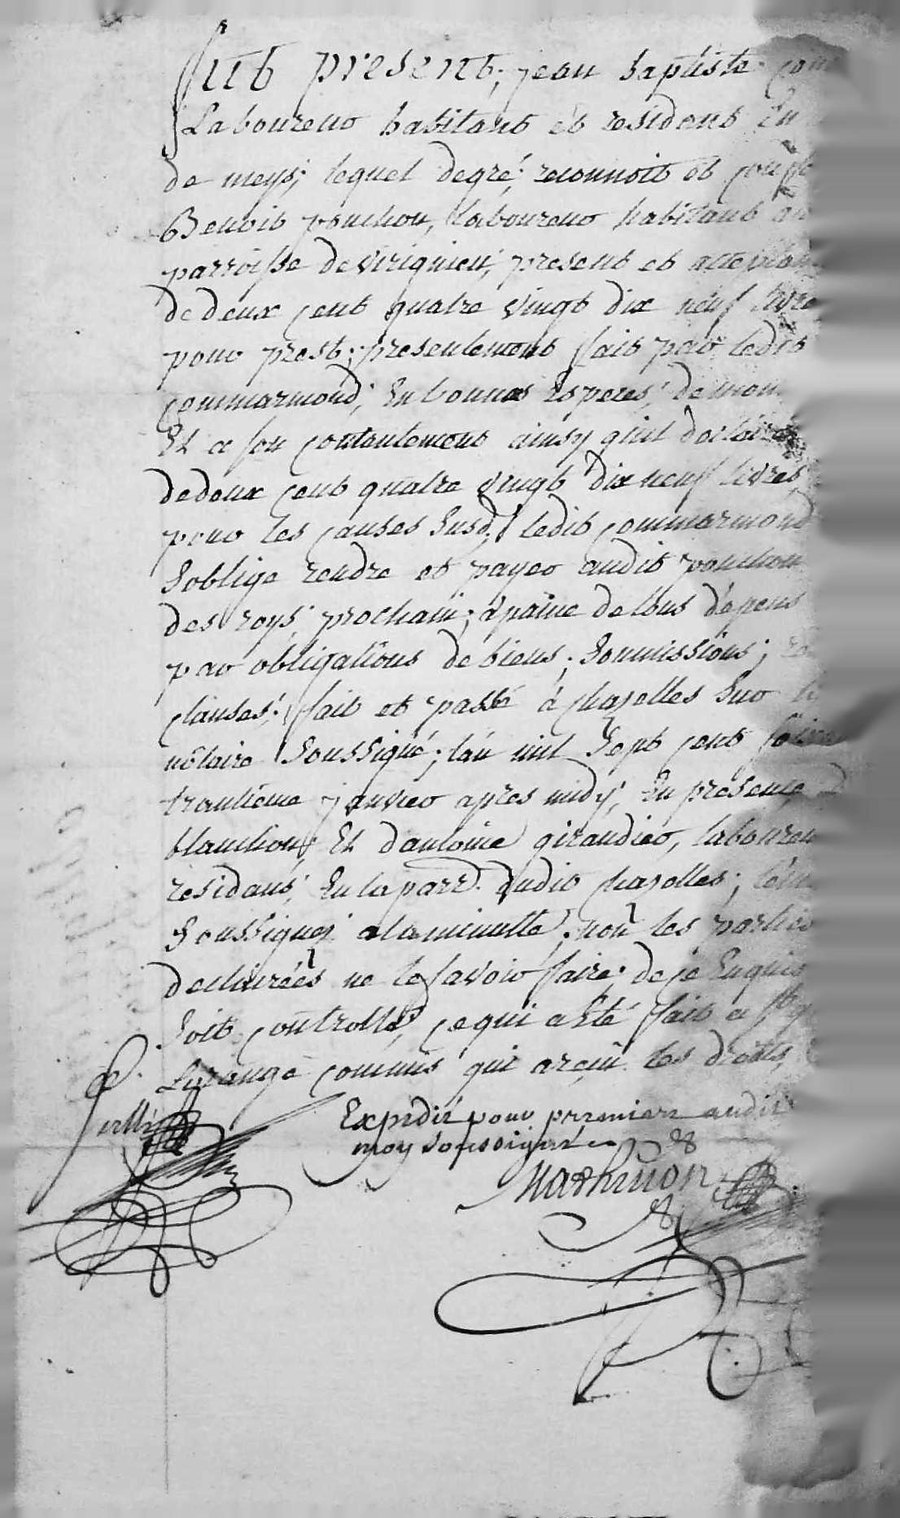 fut present, jean baptiste
Laboureur habitant et resident En
de meys; lequel degré; reconnoit et
Benoit ponchon, laboureur habitant
parroisse de viriguieu; present et
de deux cent quatre vingt dix neuf livre
pour prest; presentement fait par ledit
commarmond; En bonnes Especes;
Et a son contentement ainsy quil
de deux cent quatre vingt dix neuf livres
pour les causes Susd. ledit commarmond
Soblige rendre et payer audit ponchon
des roys; prochain; a paine de tous depens
par obligations de biens; Soumissions;
clauses; fait et passé à chazelles Sur
nôtaire Soussigné; l'an mil Sept cent
trantieme janvier apres midy; En presence
blanchon; Et d'antoine giraudier, laboureu
residans; En la parr. dudit chazelles;
Soussignes a la minutte; non les parties
declairées ne le savoir faire; de ce Enquis
Soit controllé, ce qui a Eté fait a
commis qui a reçu les droits,
Expedié pour premiere audit
moy soussigné